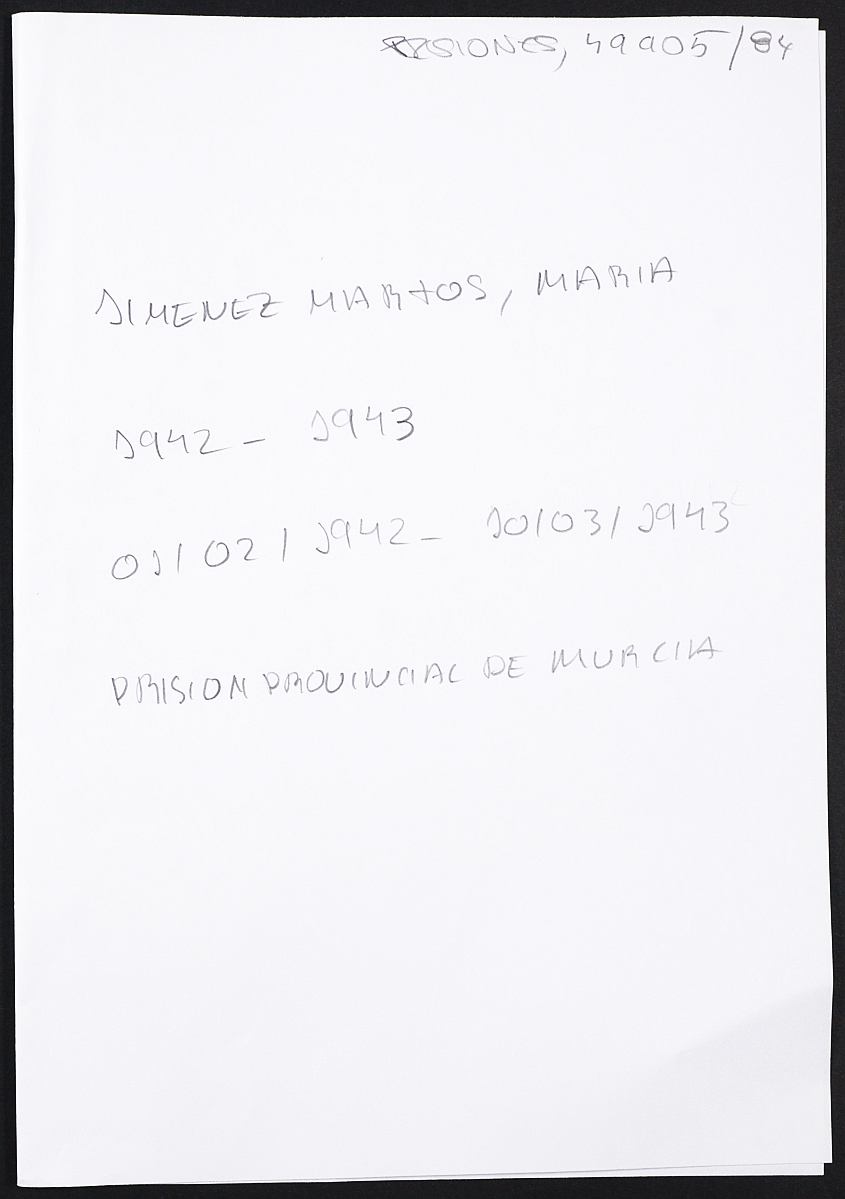 PRISIONES, 49905/84
JIMENEZ MARTOS, MARIA
1942 - 1943
01/02/1942 - 10/03/1943
PRISION PROVINCIAL DE MURCIA